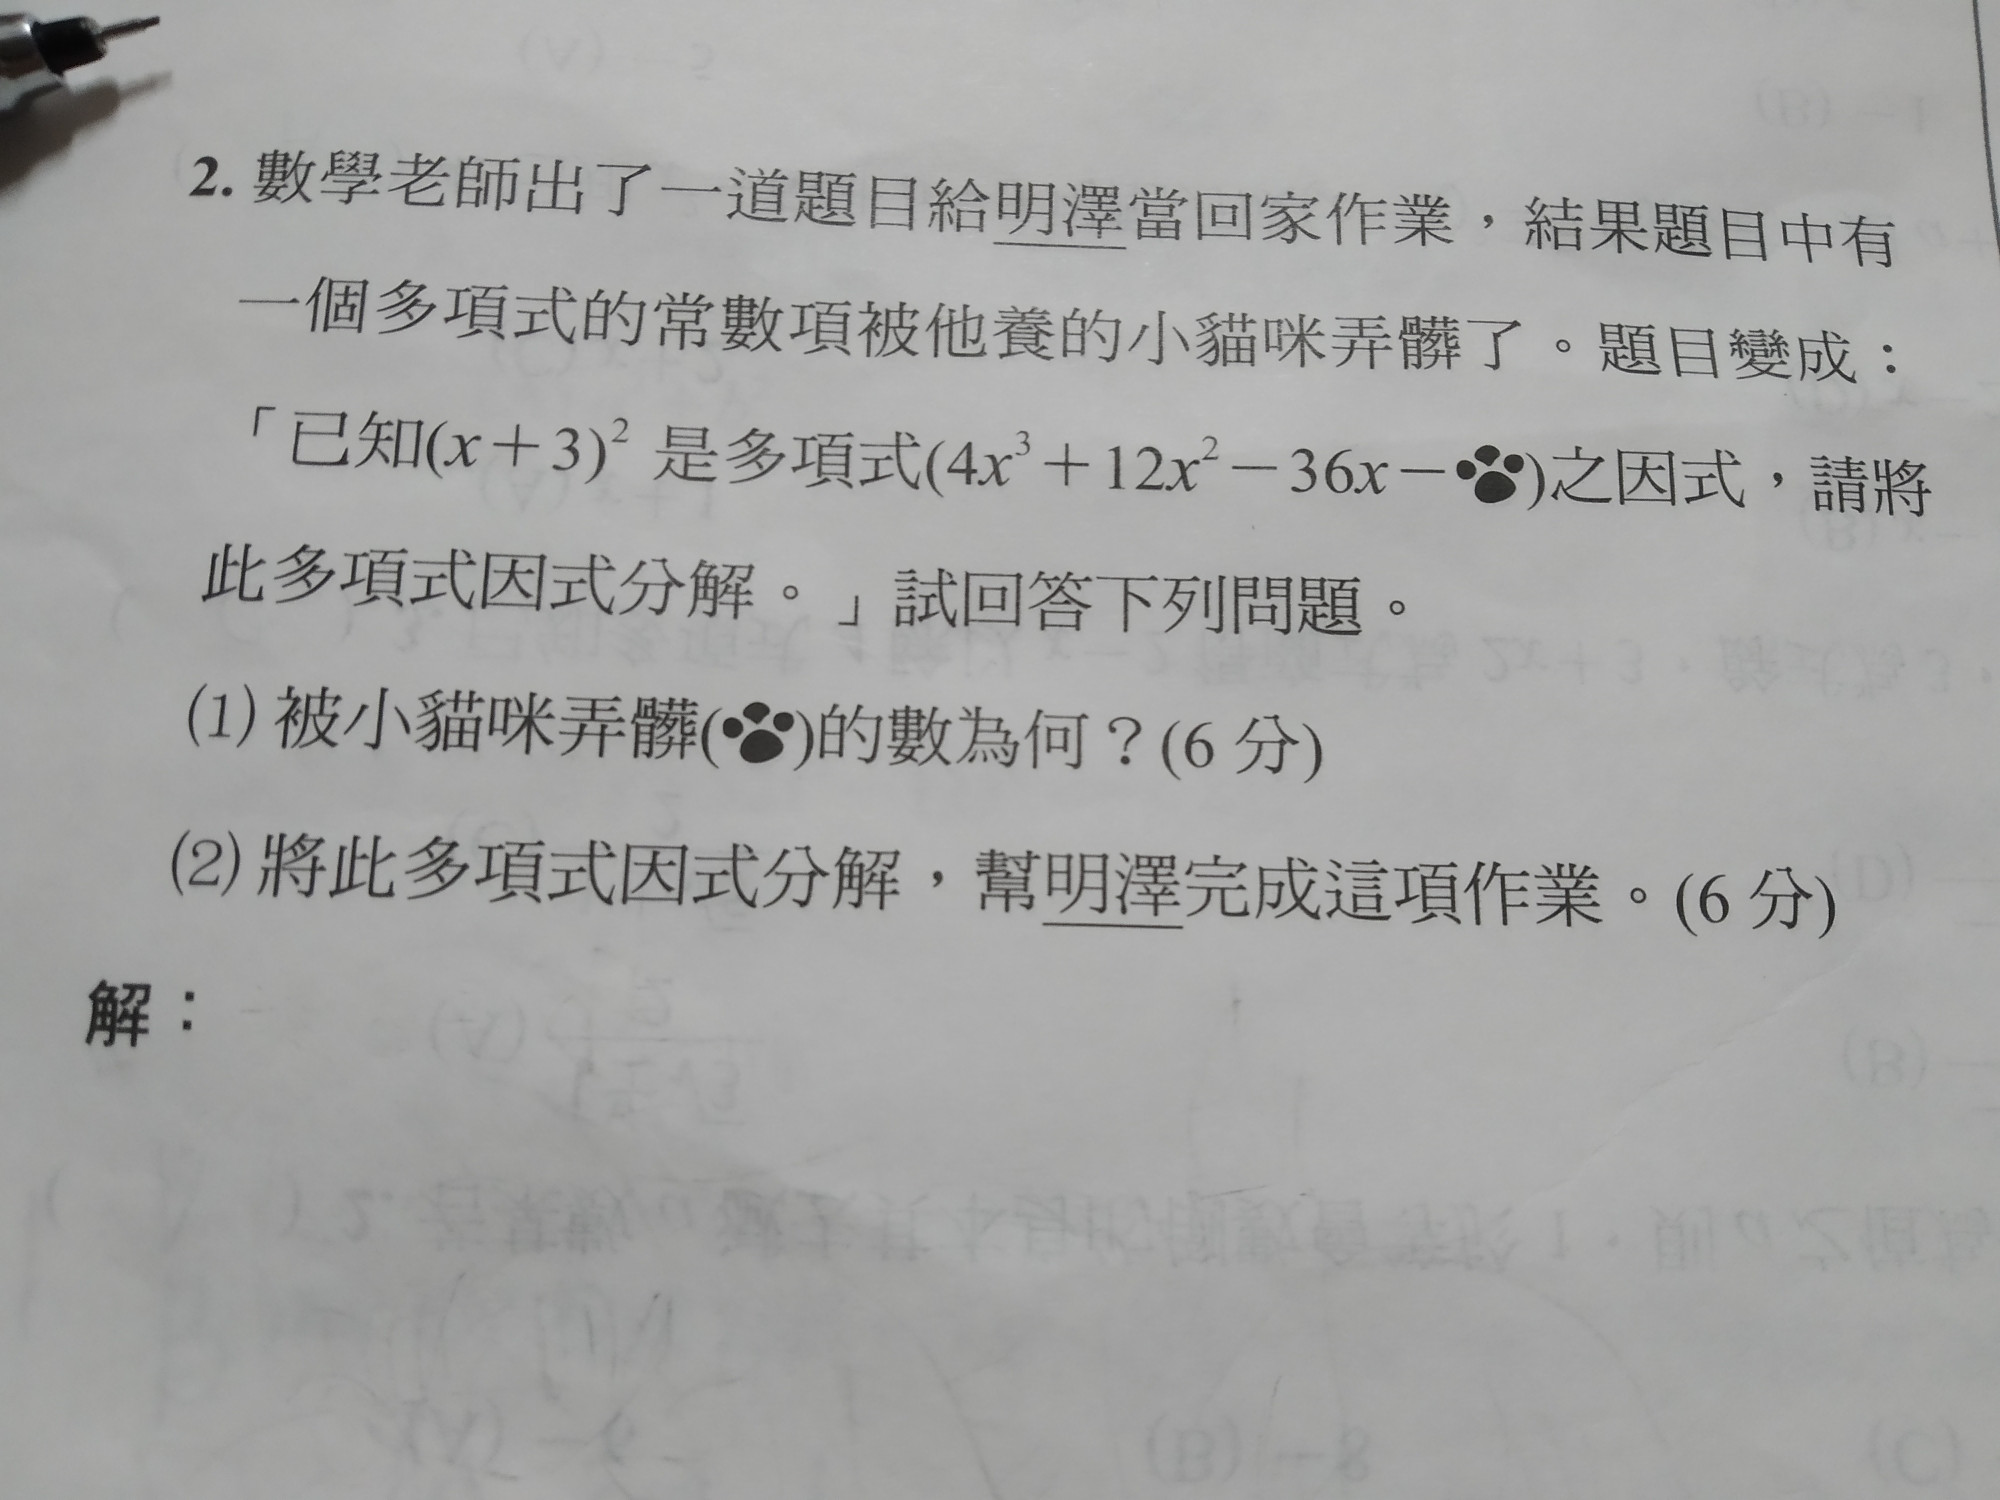 2. 數學老師出了一道題目給明澤當回家作業，結果題目中有
一個多項式的常數項被他養的小貓咪弄髒了。題目變成：
「已知(x＋3)² 是多項式(4x³＋12x²－36x－🐾)之因式，請將
此多項式因式分解。」試回答下列問題。
(1) 被小貓咪弄髒(🐾)的數為何？(6 分)
(2) 將此多項式因式分解，幫明澤完成這項作業。(6 分)
解：